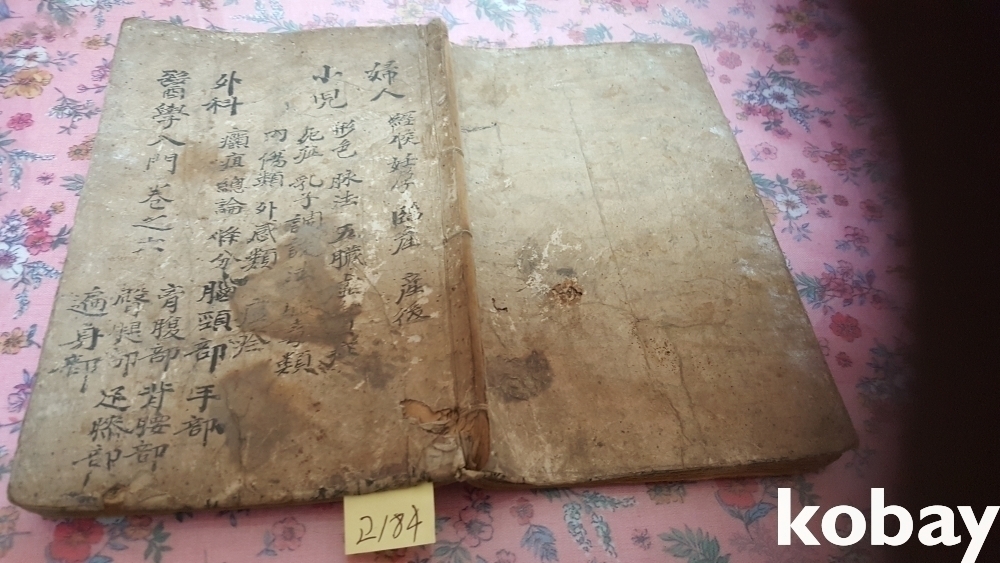 婦人 經候 姙孕 臨産 産後
小児 形色 脉法 五臟
死症 乳子調護法 類
內傷類 外感類 痘疹
外科 癰疽總論 條分 腦頸部 手部
背腰部
胷腹部
臀腿部 足膝部
遍身部
醫學入門 卷之六
2184
kobay